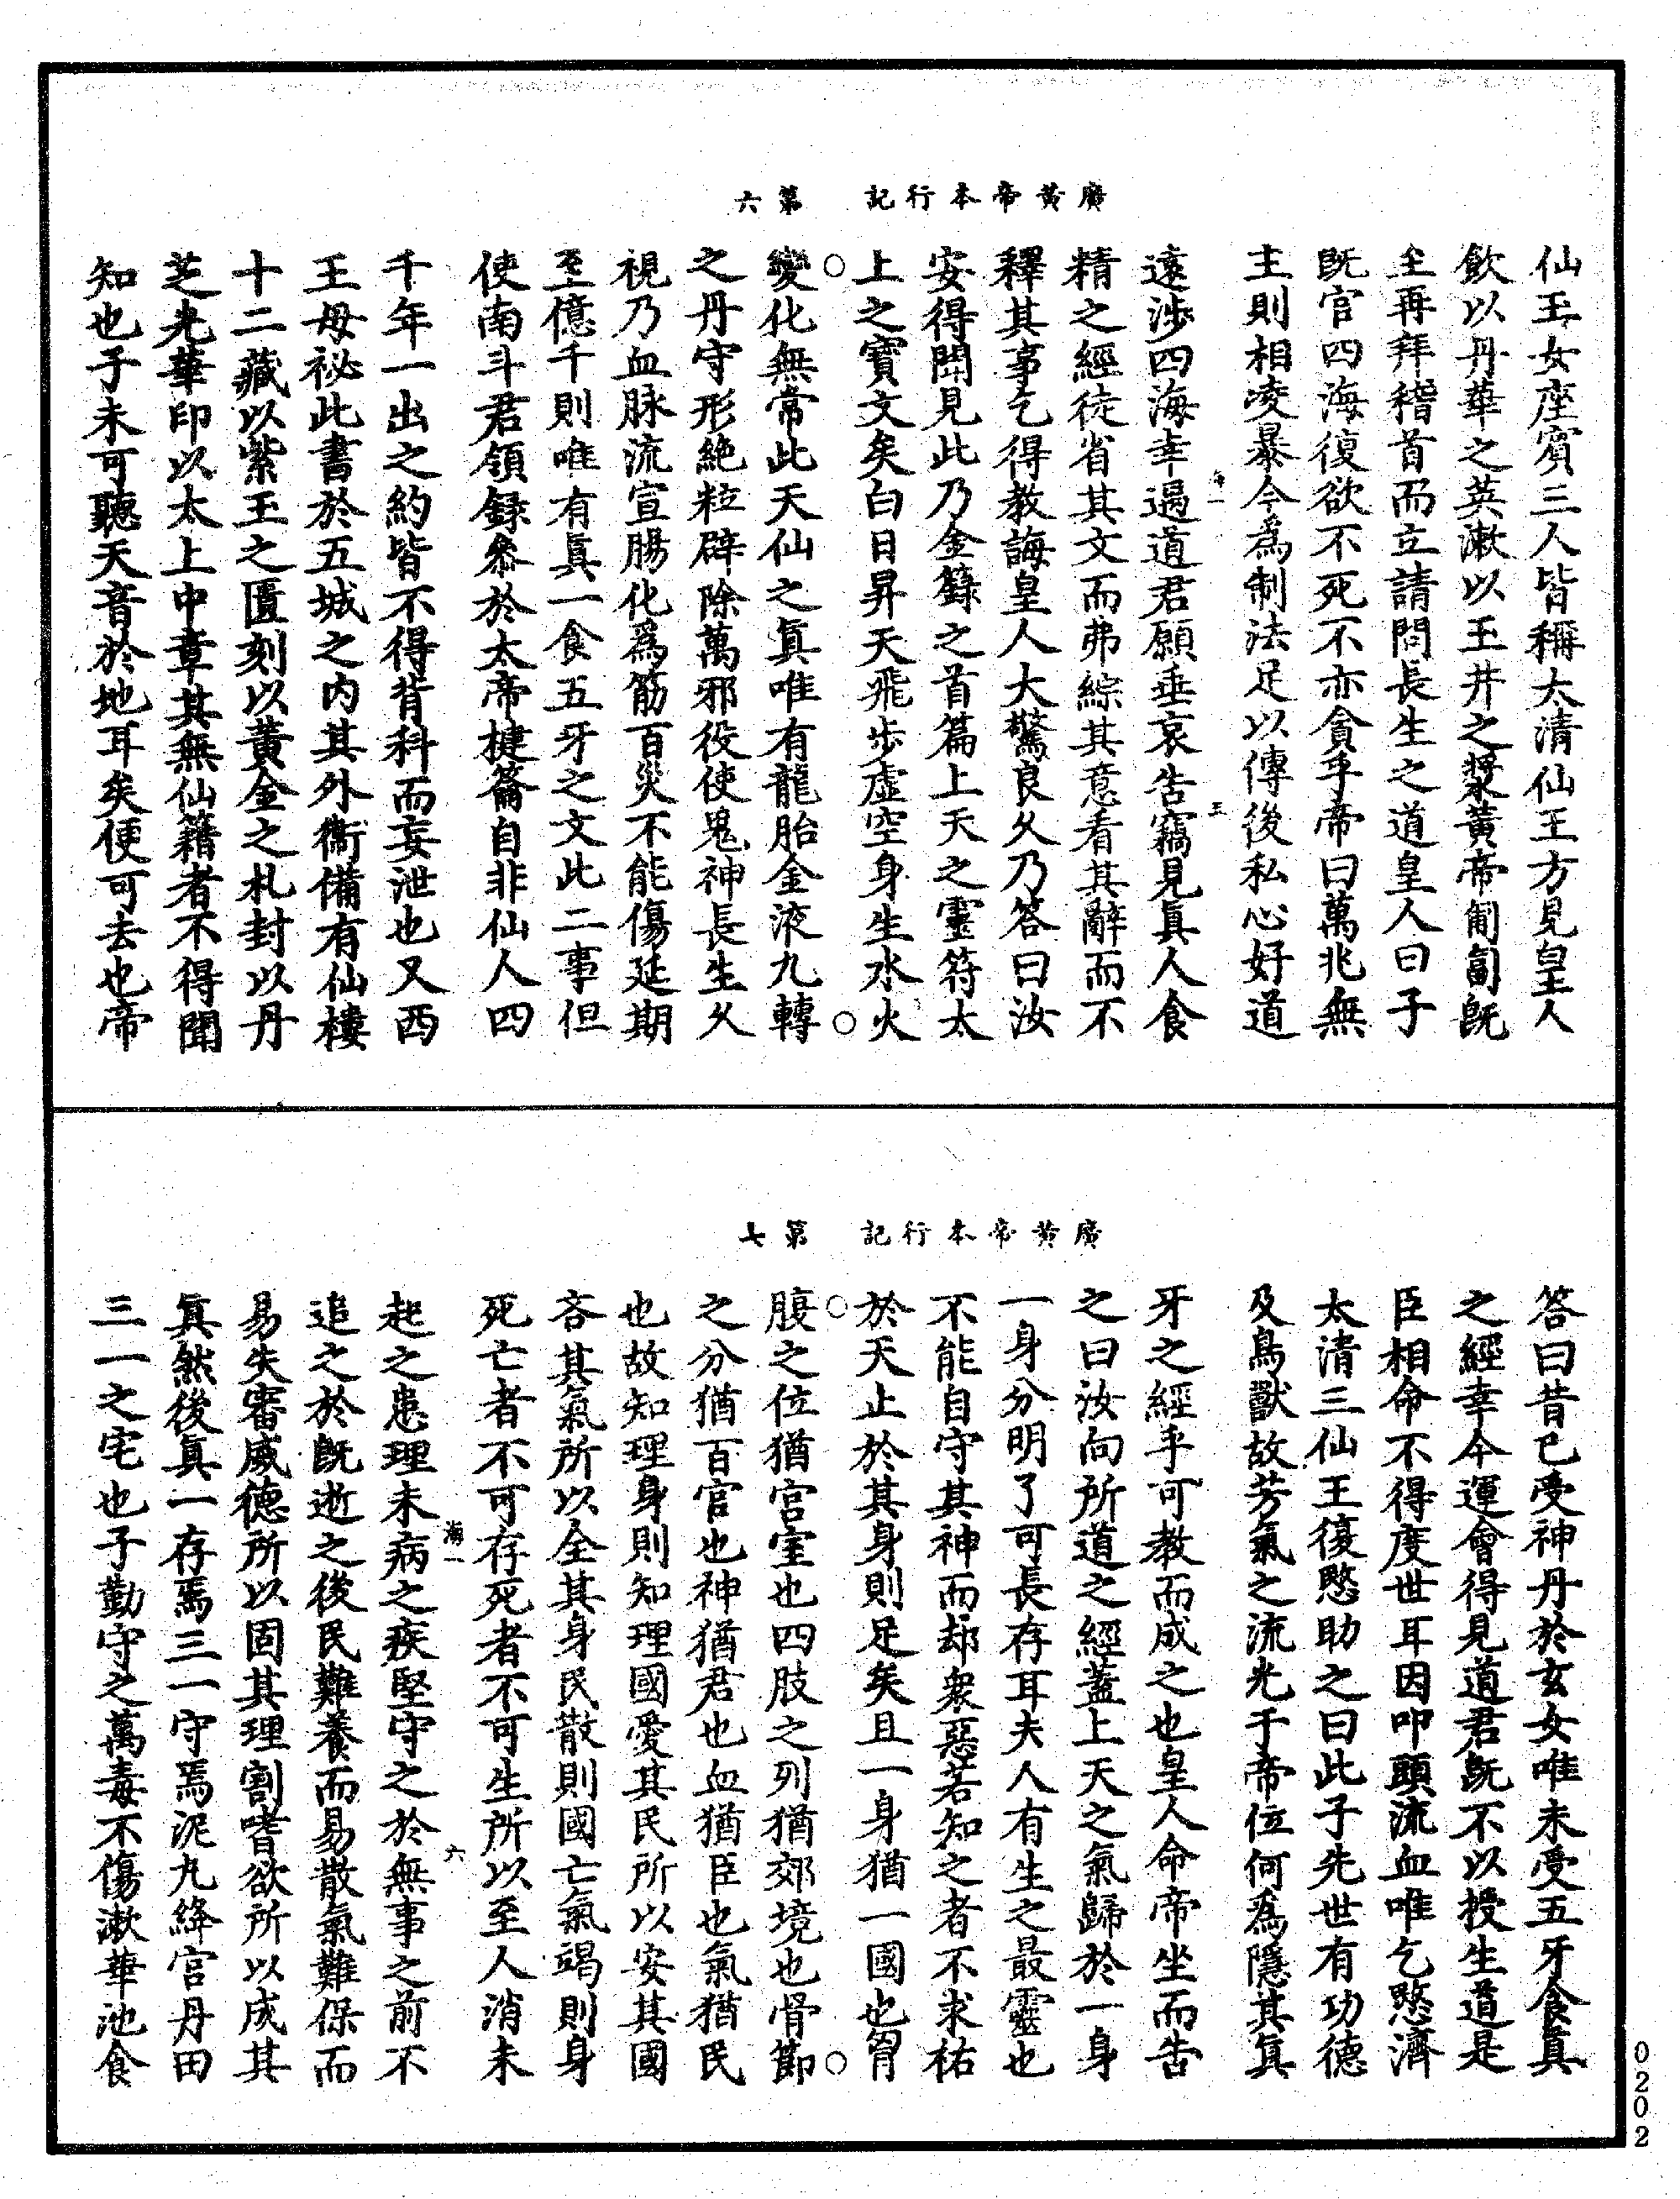 廣黃帝本行記　第六
仙王女座賓三人皆稱太清仙王方見皇人
飲以丹華之英漱以玉井之漿黃帝匍匐旣
至再拜稽首而立請問長生之道皇人曰子
旣官四海復欲不死不亦貪乎帝曰萬兆無
主則相凌暴今爲制法足以傳後私心好道
遠涉四海幸遇道君願垂哀告竊見真人食
精之經徒省其文而弗綜其意看其辭而不
釋其事乞得教誨皇人大驚良久乃答曰汝
安得聞見此乃金籙之首篇上天之靈符太
上之寶文矣白日昇天飛步虛空身生水火
變化無常此天仙之真唯有龍胎金液九轉
之丹守形絶粒辟除萬邪役使鬼神長生久
視乃血脉流宣腸化爲筋百災不能傷延期
至億千則唯有真一食五牙之文此二事但
使南斗君領録叅於太帝揵籥自非仙人四
千年一出之約皆不得背科而妄泄也又西
王母祕此書於五城之内其外衞備有仙樓
十二藏以紫玉之匱刻以黃金之札封以丹
芝光華印以太上中章其無仙籍者不得聞
知也子未可聽天音於地耳矣便可去也帝
廣黃帝本行記　第七
答曰昔已受神丹於玄女唯未受五牙食真
之經幸今運會得見道君旣不以授生道是
臣相命不得度世耳因叩頭流血唯乞愍濟
太清三仙王復愍助之曰此子先世有功德
及鳥獸故芳氣之流光于帝位何爲隱其真
牙之經乎可教而成之也皇人命帝坐而告
之曰汝向所道之經蓋上天之氣歸於一身
一身分明了可長存耳夫人有生之最靈也
不能自守其神而却衆惡若知之者不求祐
於天止於其身則足矣且一身猶一國也胷
腹之位猶宮室也四肢之列猶郊境也骨節
之分猶百官也神猶君也血猶臣也氣猶民
也故知理身則知理國愛其民所以安其國
吝其氣所以全其身民散則國亡氣竭則身
死亡者不可存死者不可生所以至人消未
起之患理未病之疾堅守之於無事之前不
追之於旣逝之後民難養而易散氣難保而
易失審威德所以固其理割嗜欲所以成其
真然後真一存焉三一守焉泥丸絳宮丹田
三一之宅也子勤守之萬毒不傷漱華池食
0202